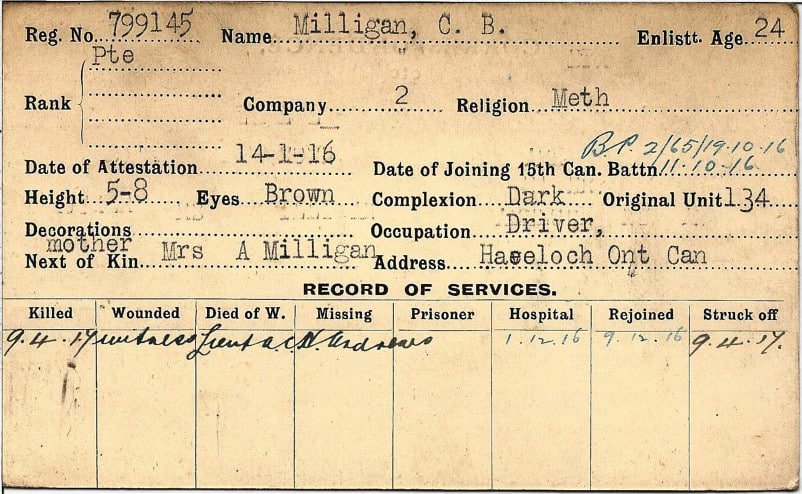 Reg. No. 799145 Name Milligan, C. B. Enlistt. Age 24
Pte
Rank Company 2 Religion Meth
B.P. 2/65/19.10.16
Date of Attestation 14-1-16 Date of Joining 15th Can. Battn. 11-10-16
Height 5-8 Eyes Brown Complexion Dark Original Unit 134
Decorations Occupation Driver,
mother
Next of Kin Mrs A Milligan Address Haveloch Ont Can
RECORD OF SERVICES.
Killed Wounded Died of W. Missing Prisoner Hospital Rejoined Struck off
9.4.17 witness Lieut 1.12.16 9.12.16 9.4.17.